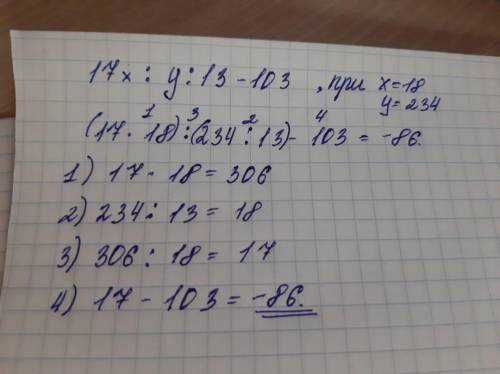 17x : y : 13 - 103 , при x=18
y=234
1 3 2 4
(17 · 18) : (234 : 13) - 103 = -86.
1) 17 · 18 = 306
2) 234 : 13 = 18
3) 306 : 18 = 17
4) 17 - 103 = -86.